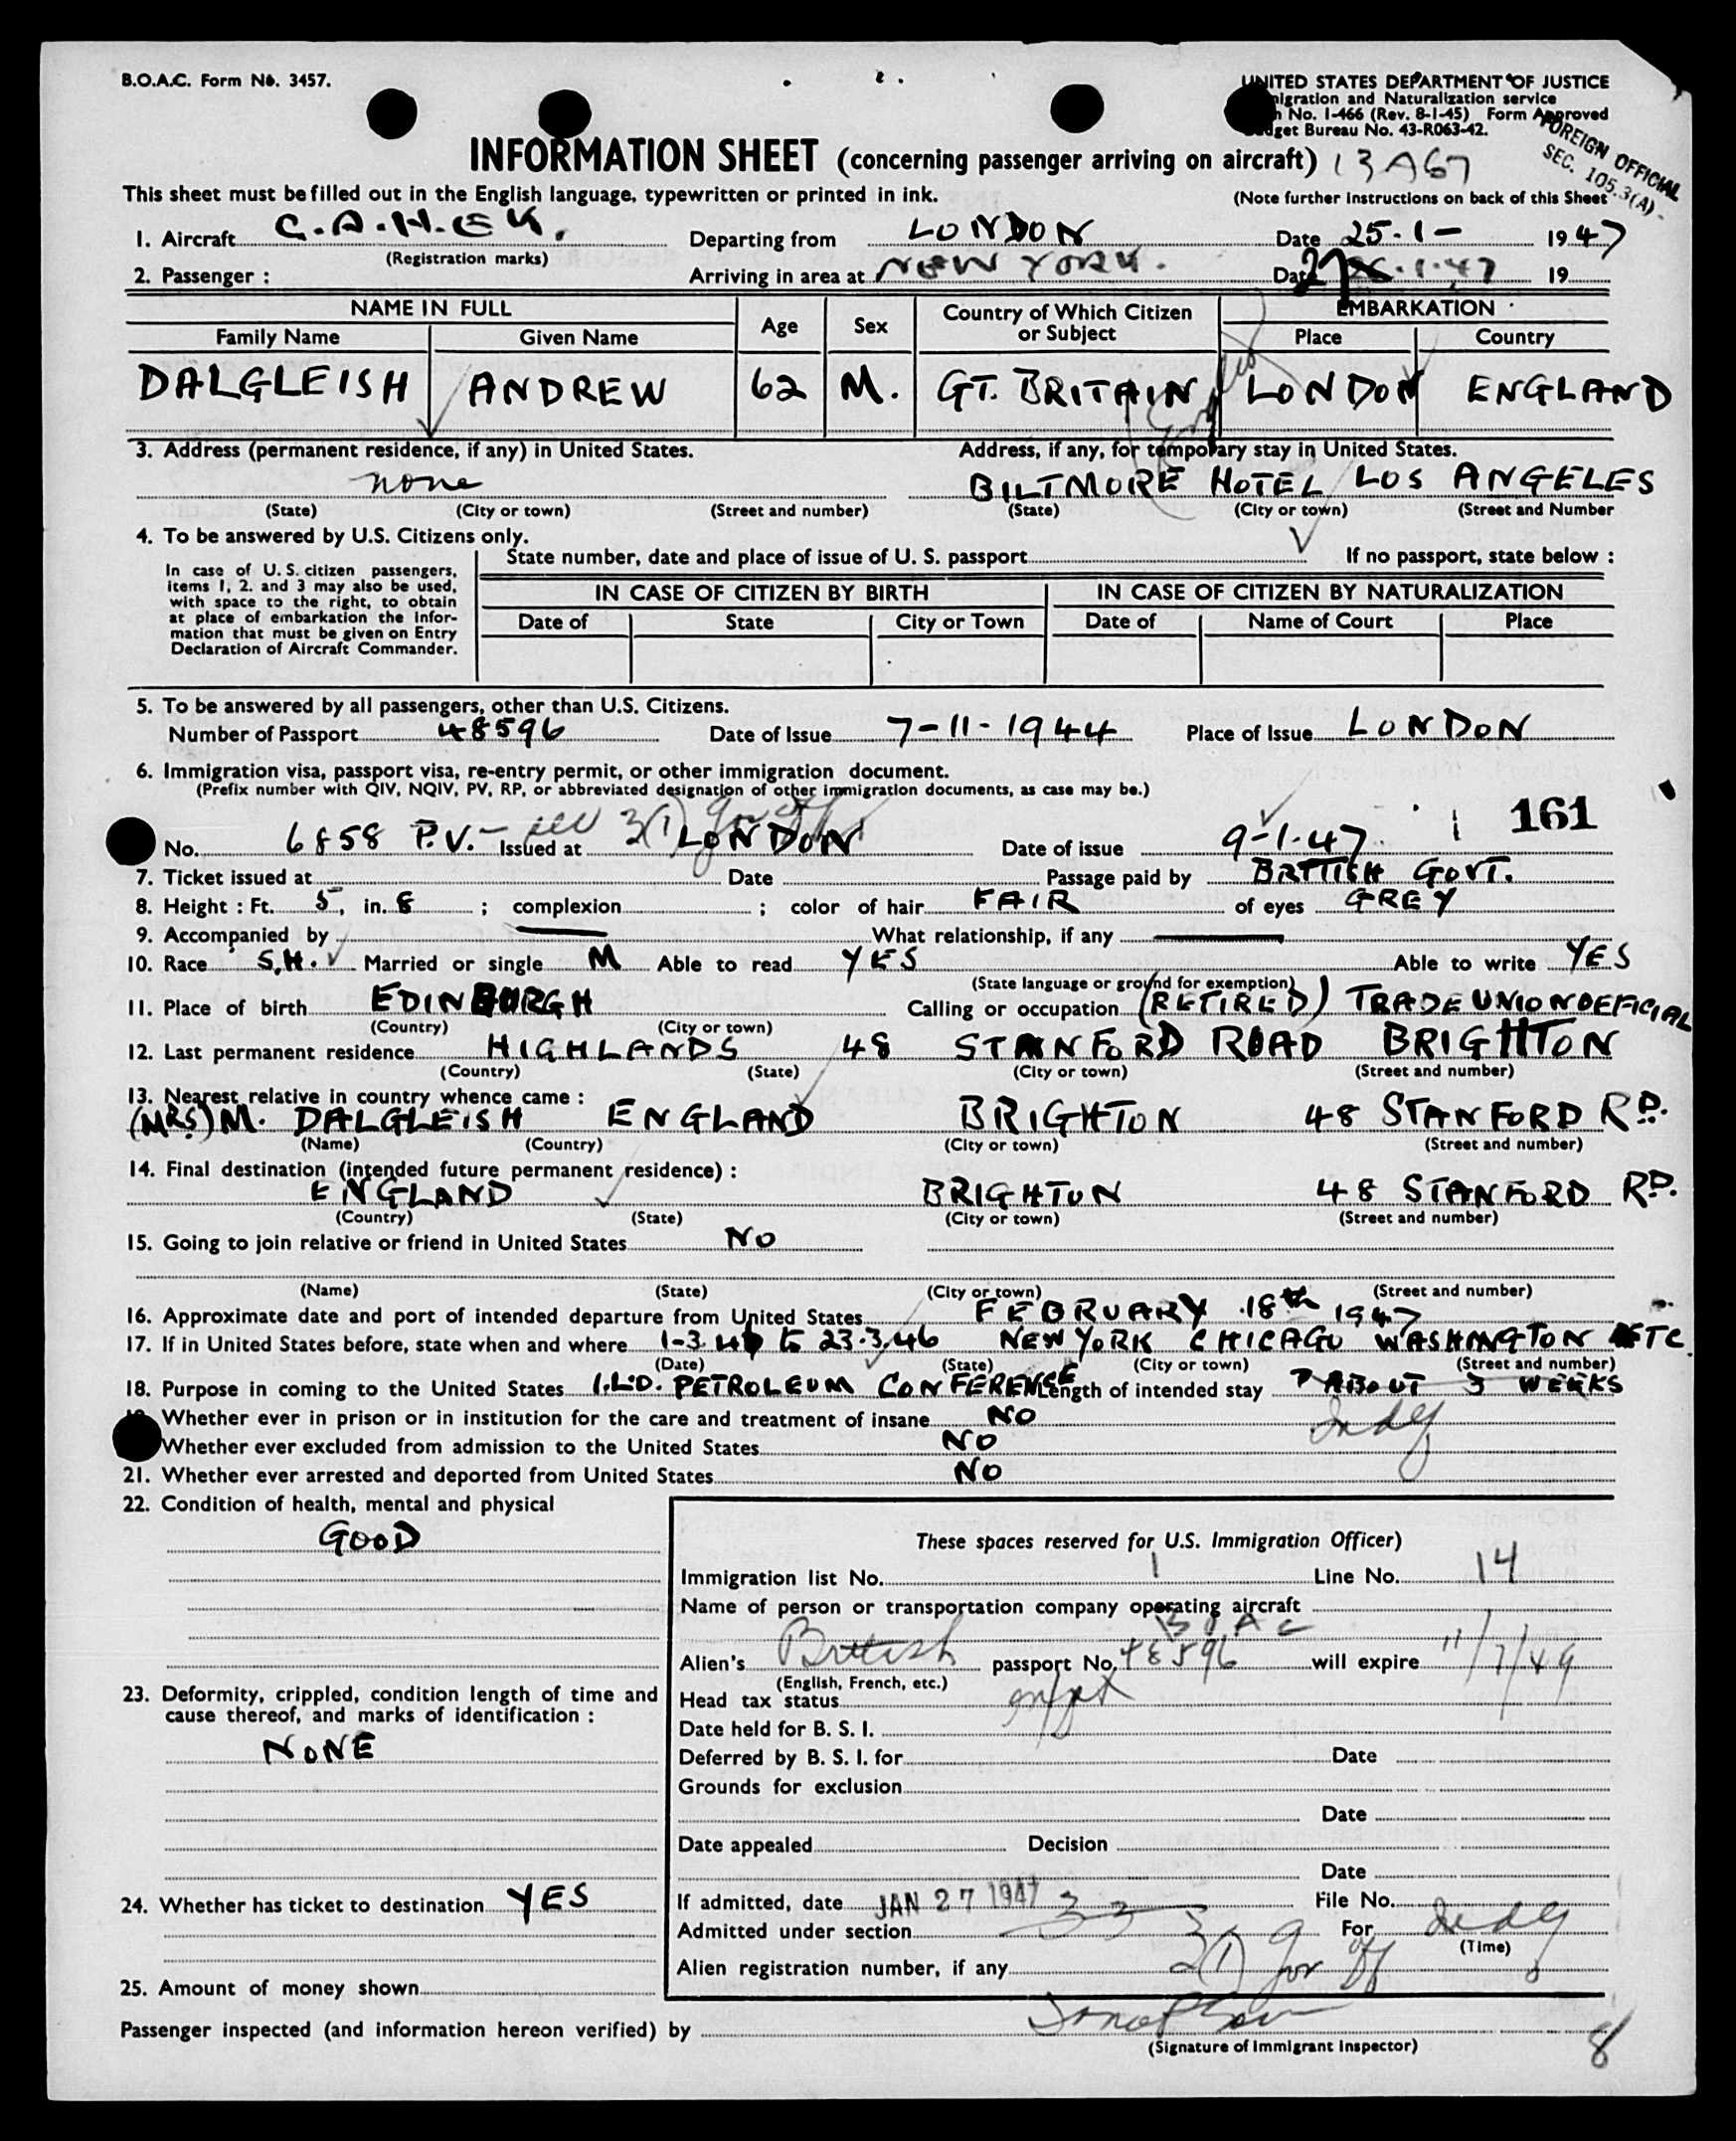 B.O.A.C. Form No. 3457.
UNITED STATES DEPARTMENT OF JUSTICE
Immigration and Naturalization service
Form No. I-466 (Rev. 8-1-45) Form Approved
Budget Bureau No. 43-R063-42.
FOREIGN OFFICIAL
SEC. 105.3(A)
INFORMATION SHEET (concerning passenger arriving on aircraft) 13A67
This sheet must be filled out in the English language, typewritten or printed in ink.
(Note further Instructions on back of this Sheet
1. Aircraft G.A.H.E.K. Departing from LONDON Date 25.1- 1947
(Registration marks)
2. Passenger : Arriving in area at NEW YORK. Date 27 .1.47 19
NAME IN FULL Age Sex Country of Which Citizen or Subject EMBARKATION
Family Name Given Name Place Country
DALGLEISH ANDREW 62 M. GT. BRITAIN LONDON ENGLAND
(English)
3. Address (permanent residence, if any) in United States. Address, if any, for temporary stay in United States.
none BILTMORE HOTEL LOS ANGELES
(State) (City or town) (Street and number) (State) (City or town) (Street and Number
4. To be answered by U.S. Citizens only.
State number, date and place of issue of U. S. passport If no passport, state below :
In case of U. S. citizen passengers,
items 1, 2. and 3 may also be used,
with space to the right, to obtain
at place of embarkation the Infor-
mation that must be given on Entry
Declaration of Aircraft Commander.
IN CASE OF CITIZEN BY BIRTH IN CASE OF CITIZEN BY NATURALIZATION
Date of State City or Town Date of Name of Court Place
5. To be answered by all passengers, other than U.S. Citizens.
Number of Passport 48596 Date of Issue 7-11-1944 Place of Issue LONDON
6. Immigration visa, passport visa, re-entry permit, or other immigration document.
(Prefix number with QIV, NQIV, PV, RP, or abbreviated designation of other immigration documents, as case may be.)
161
No. 6858 P.V. 3(1) Issued at LONDON Date of issue 9-1-47
7. Ticket issued at Date Passage paid by BRITISH GOVT.
8. Height : Ft. 5, in. 8 ; complexion ; color of hair FAIR of eyes GREY
9. Accompanied by What relationship, if any
10. Race S.H. Married or single M Able to read YES Able to write YES
(State language or ground for exemption)
11. Place of birth EDINBURGH Calling or occupation (RETIRED) TRADE UNION OFFICIAL
(Country) (City or town)
12. Last permanent residence HIGHLANDS 48 STANFORD ROAD BRIGHTON
(Country) (State) (City or town) (Street and number)
13. Nearest relative in country whence came :
(MRS) M. DALGLEISH ENGLAND BRIGHTON 48 STANFORD RD.
(Name) (Country) (City or town) (Street and number)
14. Final destination (intended future permanent residence) :
ENGLAND BRIGHTON 48 STANFORD RD.
(Country) (State) (City or town) (Street and number)
15. Going to join relative or friend in United States NO
(Name) (State) (City or town) (Street and number)
16. Approximate date and port of intended departure from United States FEBRUARY 18th 1947
17. If in United States before, state when and where 1-3.46 to 23.3.46 NEW YORK CHICAGO WASHINGTON ETC.
(Date) (State) (City or town) (Street and number)
18. Purpose in coming to the United States I.L.O. PETROLEUM CONFERENCE Length of intended stay ? ABOUT 3 WEEKS
Whether ever in prison or in institution for the care and treatment of insane NO
Indef
Whether ever excluded from admission to the United States NO
21. Whether ever arrested and deported from United States NO
22. Condition of health, mental and physical
GOOD
23. Deformity, crippled, condition length of time and
cause thereof, and marks of identification :
NONE
24. Whether has ticket to destination YES
25. Amount of money shown
These spaces reserved for U.S. Immigration Officer)
Immigration list No. 1 Line No. 14
Name of person or transportation company operating aircraft
BOAC
Alien's British passport No. 48596 will expire 11/7/49
(English, French, etc.)
Head tax status
Date held for B. S. I.
Deferred by B. S. I. for Date
Grounds for exclusion
Date
Date appealed Decision
Date
If admitted, date JAN 27 1947 File No.
Admitted under section 3(1) For Indef
(Time)
Alien registration number, if any
Passenger inspected (and information hereon verified) by
(Signature of Immigrant Inspector)
8